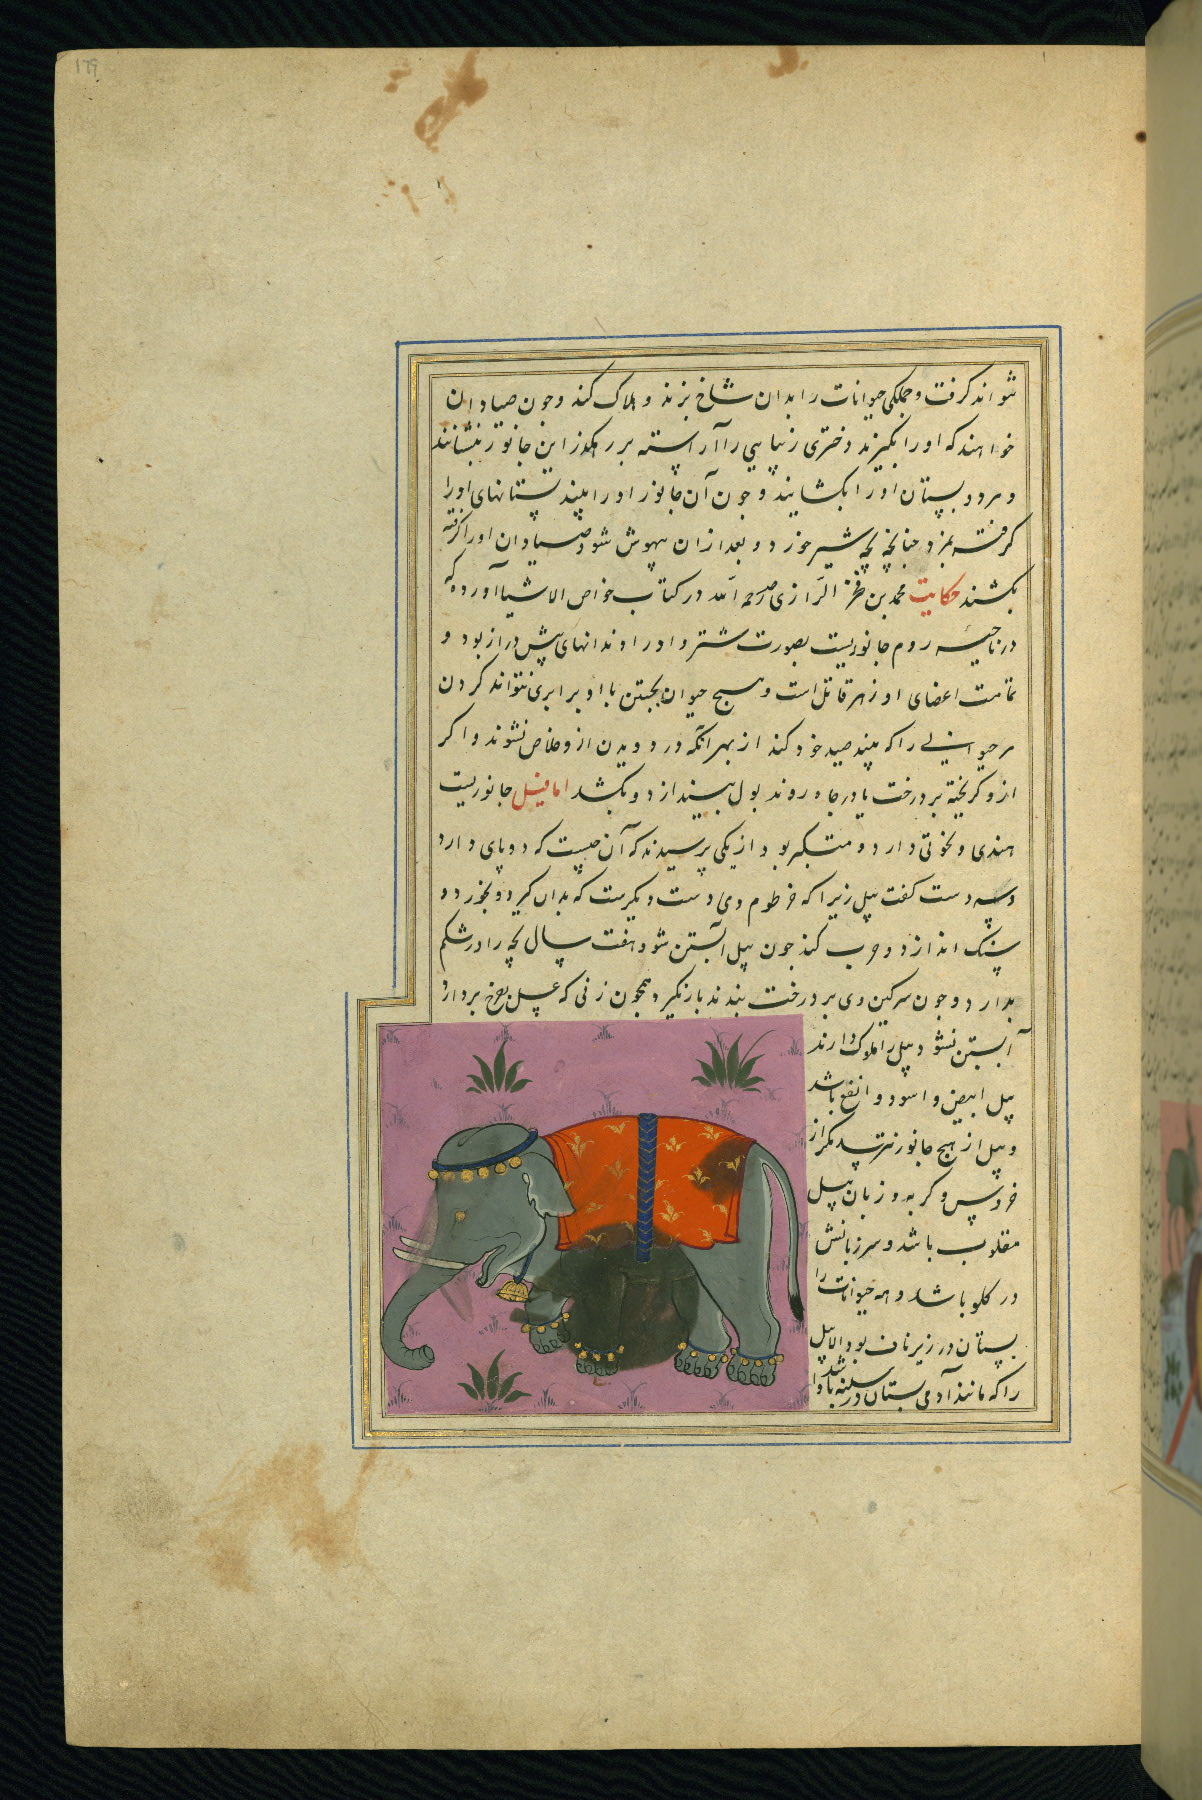 ۱۲۹
نتواند گرفت و جملگی حیوانات را بدان شاخ بزند و هلاک کند و چون صیادان
خواهند که او را بگیرند دختری زیبایی را آراسته بر رهگذر این جانور بنشانند
و هر دو پستان او را بکشایند و چون آن جانور او را بیند پستانهای او را
گرفته بمزد چنانچه بچه شیر خورد و بعد از ان بیهوش شود صیادان او را گرفته
بکشند حکایت محمد بن فخر الرازی رحمه الله در کتاب خواص الاشیا آورده که
در ناحیه روم جانوریست بصورت شتر و او را دندانهای پیش دراز بود و
تمامت اعضای او زهر قاتل است و هیچ حیوان بجستن با او برابری نتواند کردن
هر حیوانی را که بیند صید خود کند از بهر آنکه در دویدن ازو خلاص نشوند و اگر
ازو گریخته بر درخت یا در چاه روند بول بیندازد و بکشد اما فیل جانوریست
هندی و نخوتی دارد و متکبر بود از یکی پرسیدند که آن چیست که دو پای دارد
و سه دست گفت پیل زیرا که خرطوم وی دست دیگرست که بدان گیرد و بخورد و
سنگ اندازد و حرب کند چون پیل آبستن شود هفت سال بچه را در شکم
بدارد و چون سرگین وی بر درخت بندند بار نگیرد و همچون زنی که بردارد
آبستن نشود و پیل را ملوک دارند
پیل ابیض و اسود و باشد
و پیل از هیچ جانور نترسد مگر از
خروس و گربه و زبان پیل
مقلوب باشد و سر زبانش
در گلو باشد و همه حیوانات را
پستان در زیر ناف بود الا پیل
را که مانند آدمی پستان در سینه باشد